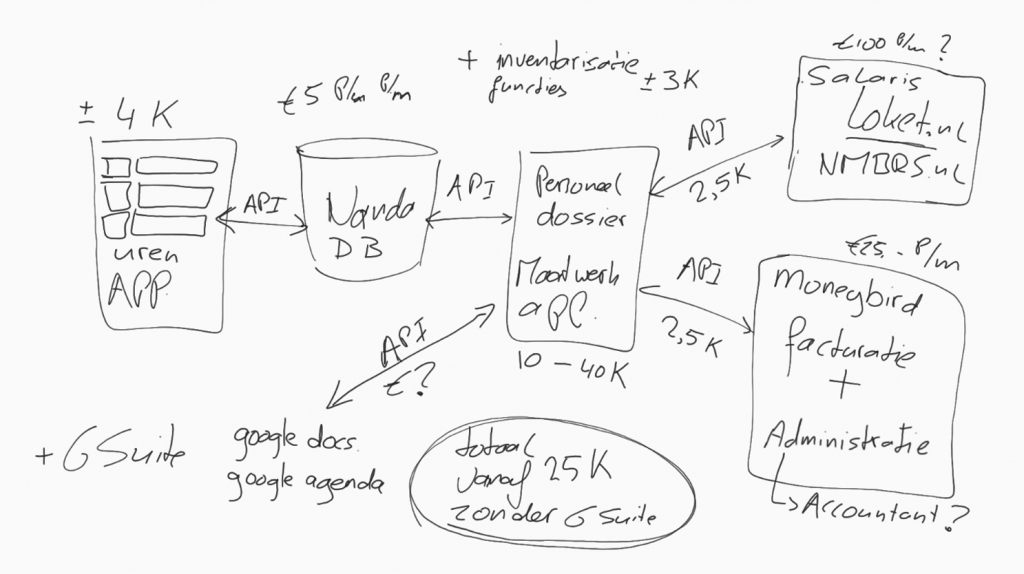 ± 4K
uren
APP.
API
€5 P/m P/m
DB
API
+ inventarisatie
functies ± 3K
Personeel
dossier
Maatwerk
app.
10 - 40K
API
2,5K
€100 P/m ?
Salaris
Loket.nl
NMBRS.nl
API
2,5K
€25,- P/m
Moneybird
facturatie
+
Administratie
Accountant?
API
€?
+ G Suite
google docs.
google agenda
totaal
vanaf 25K
zonder G Suite